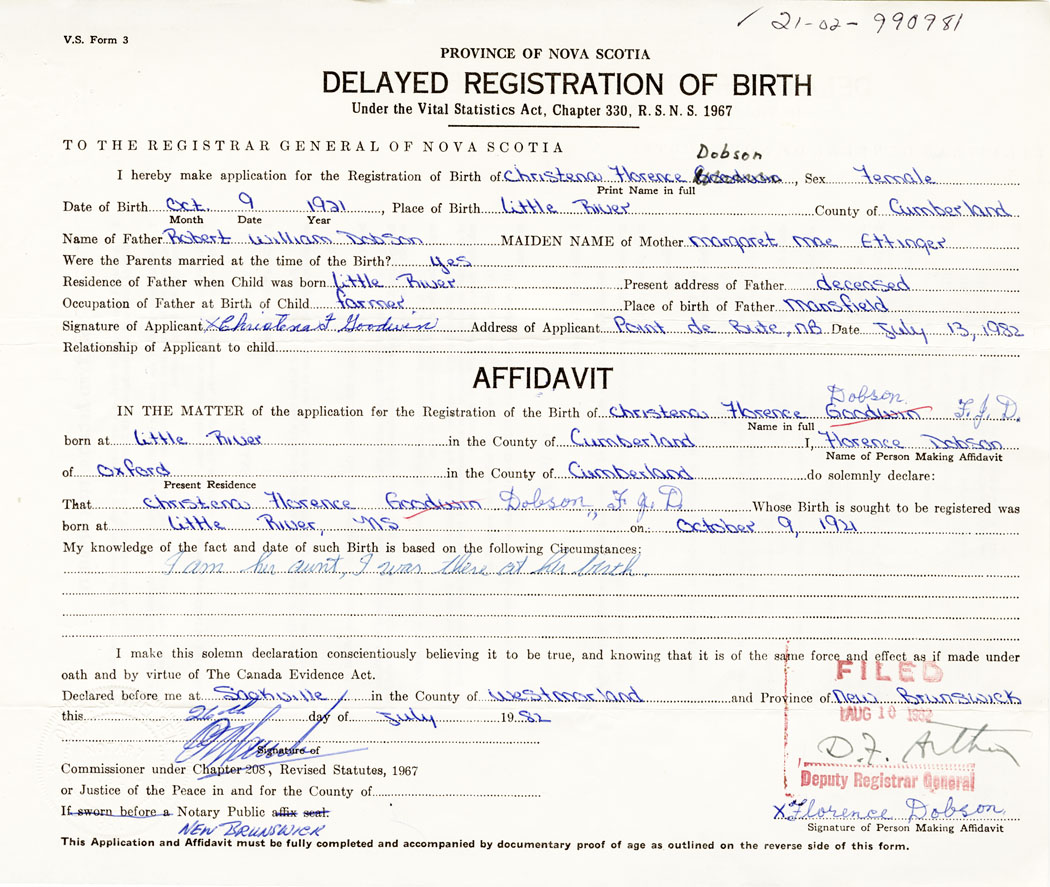 21-02-990981
V.S. Form 3
PROVINCE OF NOVA SCOTIA
DELAYED REGISTRATION OF BIRTH
Under the Vital Statistics Act, Chapter 330, R.S.N.S. 1967
TO THE REGISTRAR GENERAL OF NOVA SCOTIA
Dobson
I hereby make application for the Registration of Birth of Christena Florence Goodwin, Sex Female
Print Name in full
Date of Birth Oct. 9 1921, Place of Birth Little River County of Cumberland
Month Date Year
Name of Father Robert William Dobson MAIDEN NAME of Mother Margaret Mae Ettinger
Were the Parents married at the time of the Birth? yes
Residence of Father when Child was born Little River Present address of Father deceased
Occupation of Father at Birth of Child farmer Place of birth of Father Mansfield
Signature of Applicant X Christena F Goodwin Address of Applicant Point de Bute, NB Date July 13, 1982
Relationship of Applicant to child
AFFIDAVIT
Dobson
IN THE MATTER of the application for the Registration of the Birth of Christena Florence Goodwin F.J.D.
Name in full
born at Little River in the County of Cumberland I, Florence Dobson
Name of Person Making Affidavit
of Oxford in the County of Cumberland do solemnly declare:
Present Residence
That Christena Florence Goodwin Dobson, F J D Whose Birth is sought to be registered was
born at Little River, NS on October 9, 1921
My knowledge of the fact and date of such Birth is based on the following Circumstances:
I am her aunt, I was there at her birth.
I make this solemn declaration conscientiously believing it to be true, and knowing that it is of the same force and effect as if made under
oath and by virtue of The Canada Evidence Act.
FILED
Declared before me at Sackville in the County of Westmorland and Province of New Brunswick
this 26th day of July 1982
AUG 10 1982
D.F. Arthur
Signature of
Commissioner under Chapter 208, Revised Statutes, 1967
Deputy Registrar General
or Justice of the Peace in and for the County of
If sworn before a Notary Public affix seal.
X Florence Dobson
NEW BRUNSWICK
Signature of Person Making Affidavit
This Application and Affidavit must be fully completed and accompanied by documentary proof of age as outlined on the reverse side of this form.